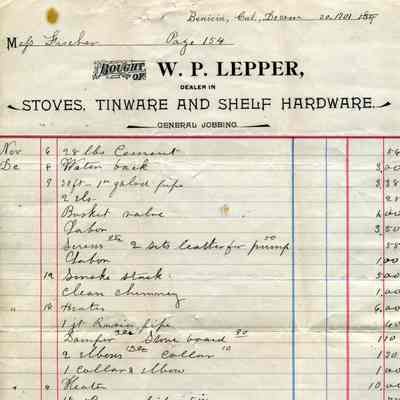 Benicia, Cal., Decem 20 1901 189
Mess Fischer Page 154
BOUGHT OF W. P. LEPPER,
DEALER IN
STOVES, TINWARE AND SHELF HARDWARE.
GENERAL JOBBING.
Nov 6 28 lbs Cement 56
De 4 Water back 3,00
9 ft 1" galvd pipe 3,38
2 els 25
Bucket valve
Labor 3,50
Screws 2 sets leather for pump 50
Labor 1,00
12 Smoke stack
Clean chimney 1,00
" 18 Heater 6,00
1 jt Russia pipe
Damper Stove board 90 1 10
2 elbows Collar 10 1 30
1 Collar & elbow 1,00
" " Heater 10,00